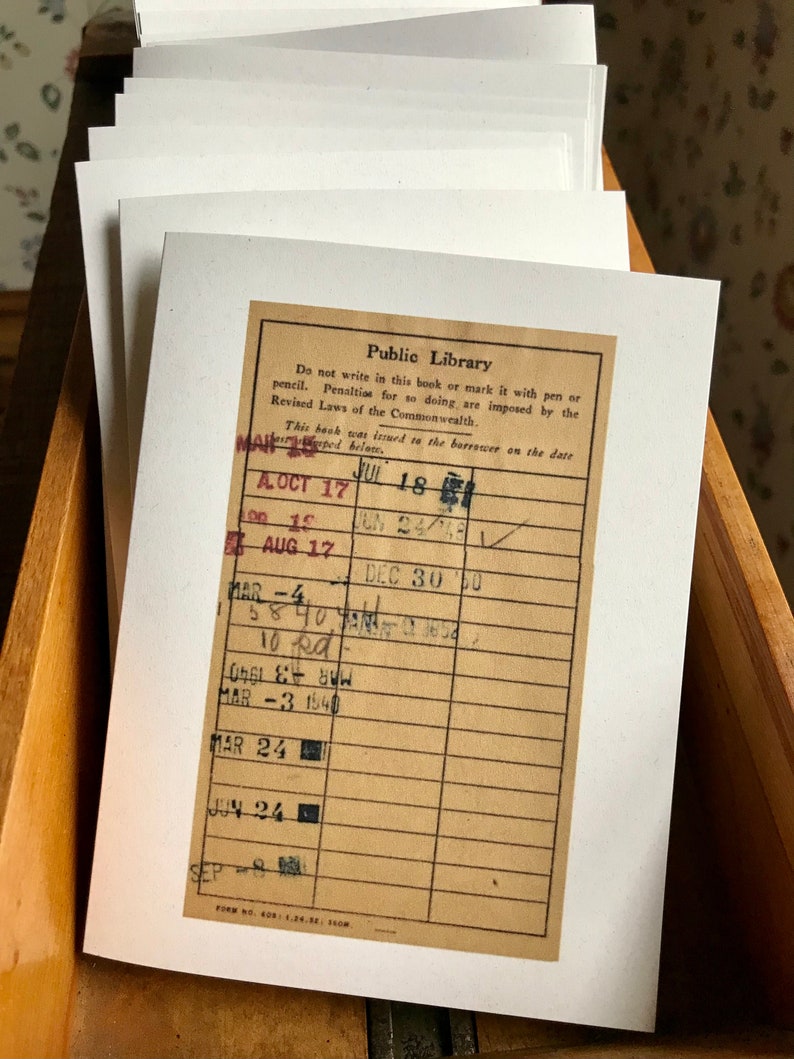 Public Library
Do not write in this book or mark it with pen or
pencil. Penalties for so doing are imposed by the
Revised Laws of the Commonwealth.
This book was issued to the borrower on the date
last stamped below.
MAR 15
A.OCT 17
APR 15
AUG 17
MAR -4
5840
10 pd.
MAR -3 1940
MAR -3 1940
MAR 24
JUN 24
SEP -8
JUL 18
JUN 24 '48
DEC 30 '50
1952
FORM NO. 609; 1.26.32; 350M.